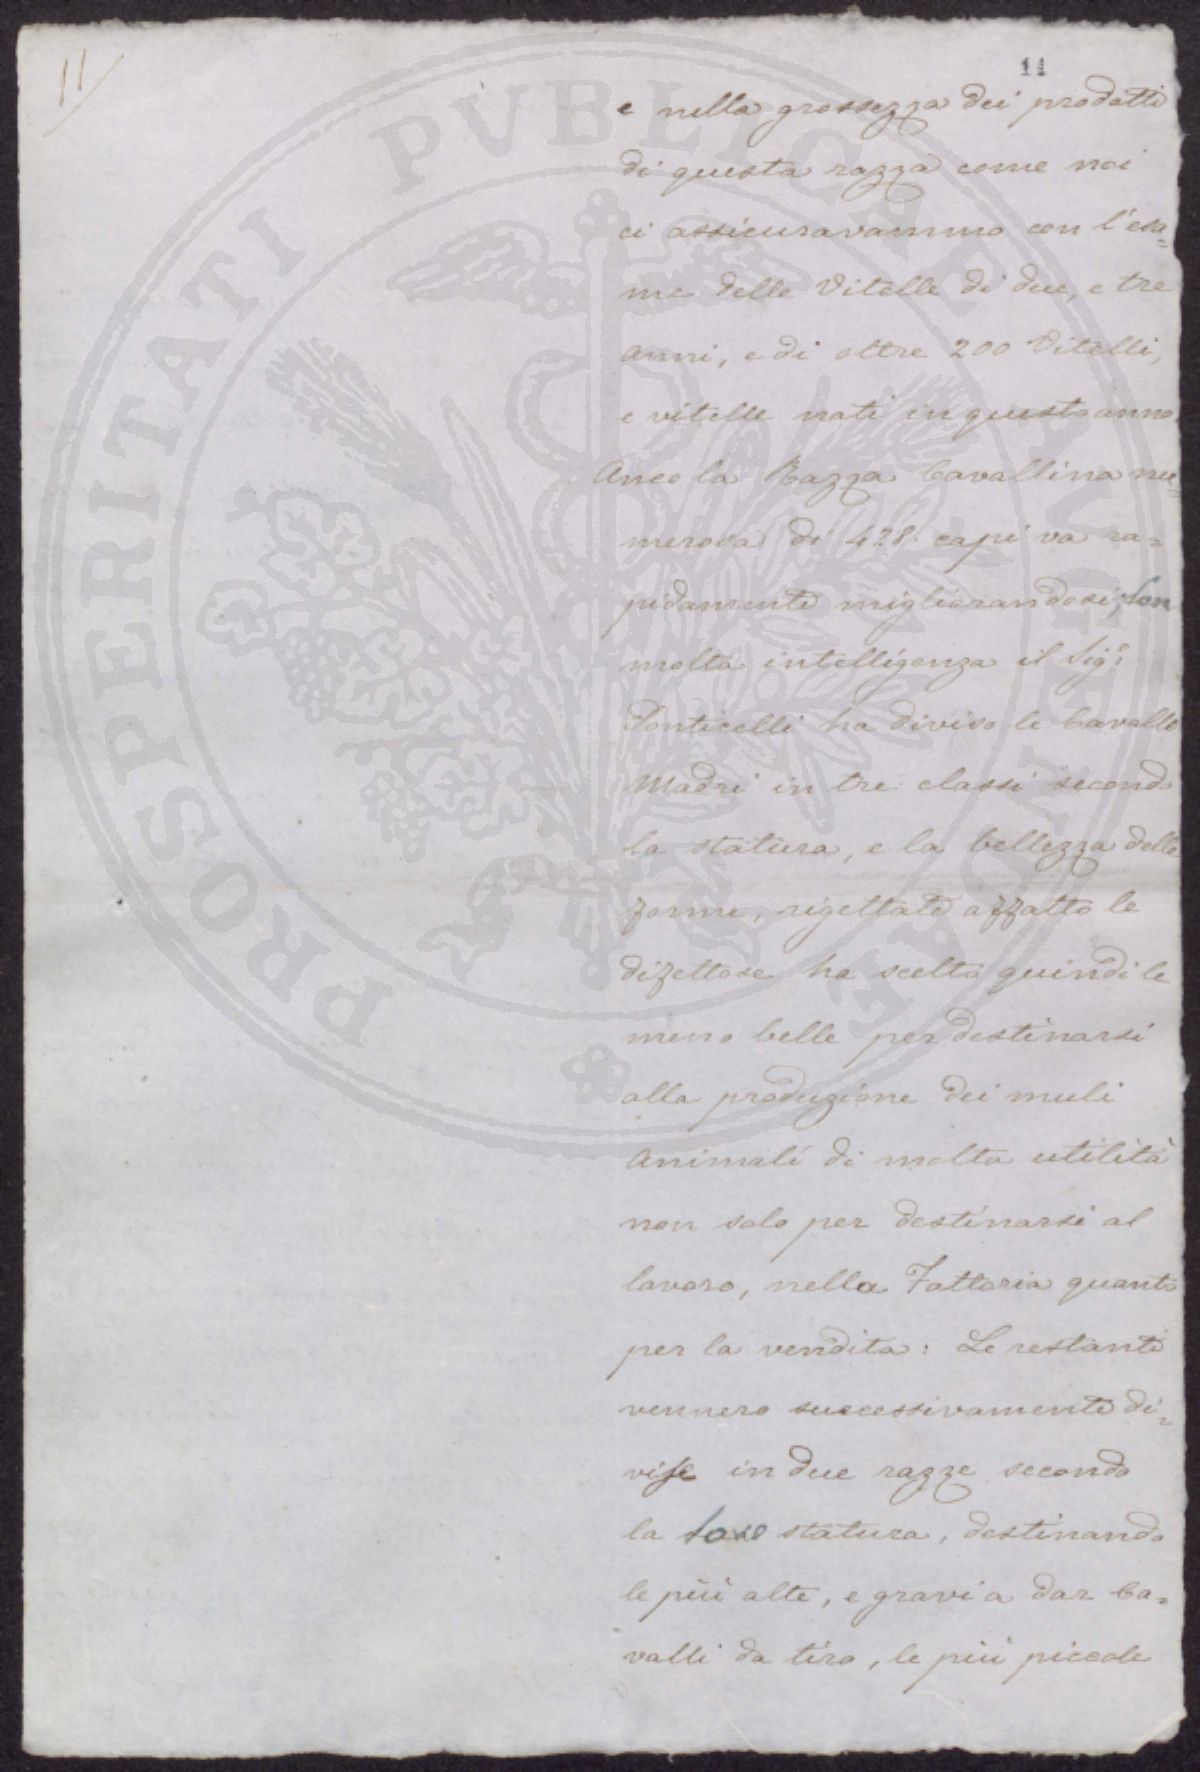 11
11
e nella grossezza dei prodotti
di questa razza come noi
ci assicuravammo con l'esa=
me delle Vitelle di due, e tre
Anni, e di oltre 200 Vitelli,
e vitelle nati in questo anno,
Anco la Razza Cavallina nu=
merosa di 428. capi va ra=
pidamente migliorandosi; Con
molta intelligenza il Sigr
Ponticelli ha diviso le Cavalle
Madri in tre classi secondo
la statura, e la bellezza delle
forme, rigettate affatto le
difettose ha scelto quindi le
meno belle per destinarsi
alla produzione dei muli
Animali di molta utilità
non solo per destinarsi al
lavoro, nella Fattoria quanto
per la vendita: Le restanti
vennero successivamente di=
vise in due razze secondo
la loro statura, destinando
le più alte, e gravi a dar Ca=
valli da tiro, le più piccole
PROSPERITATI PVBLICAE AVGENDAE